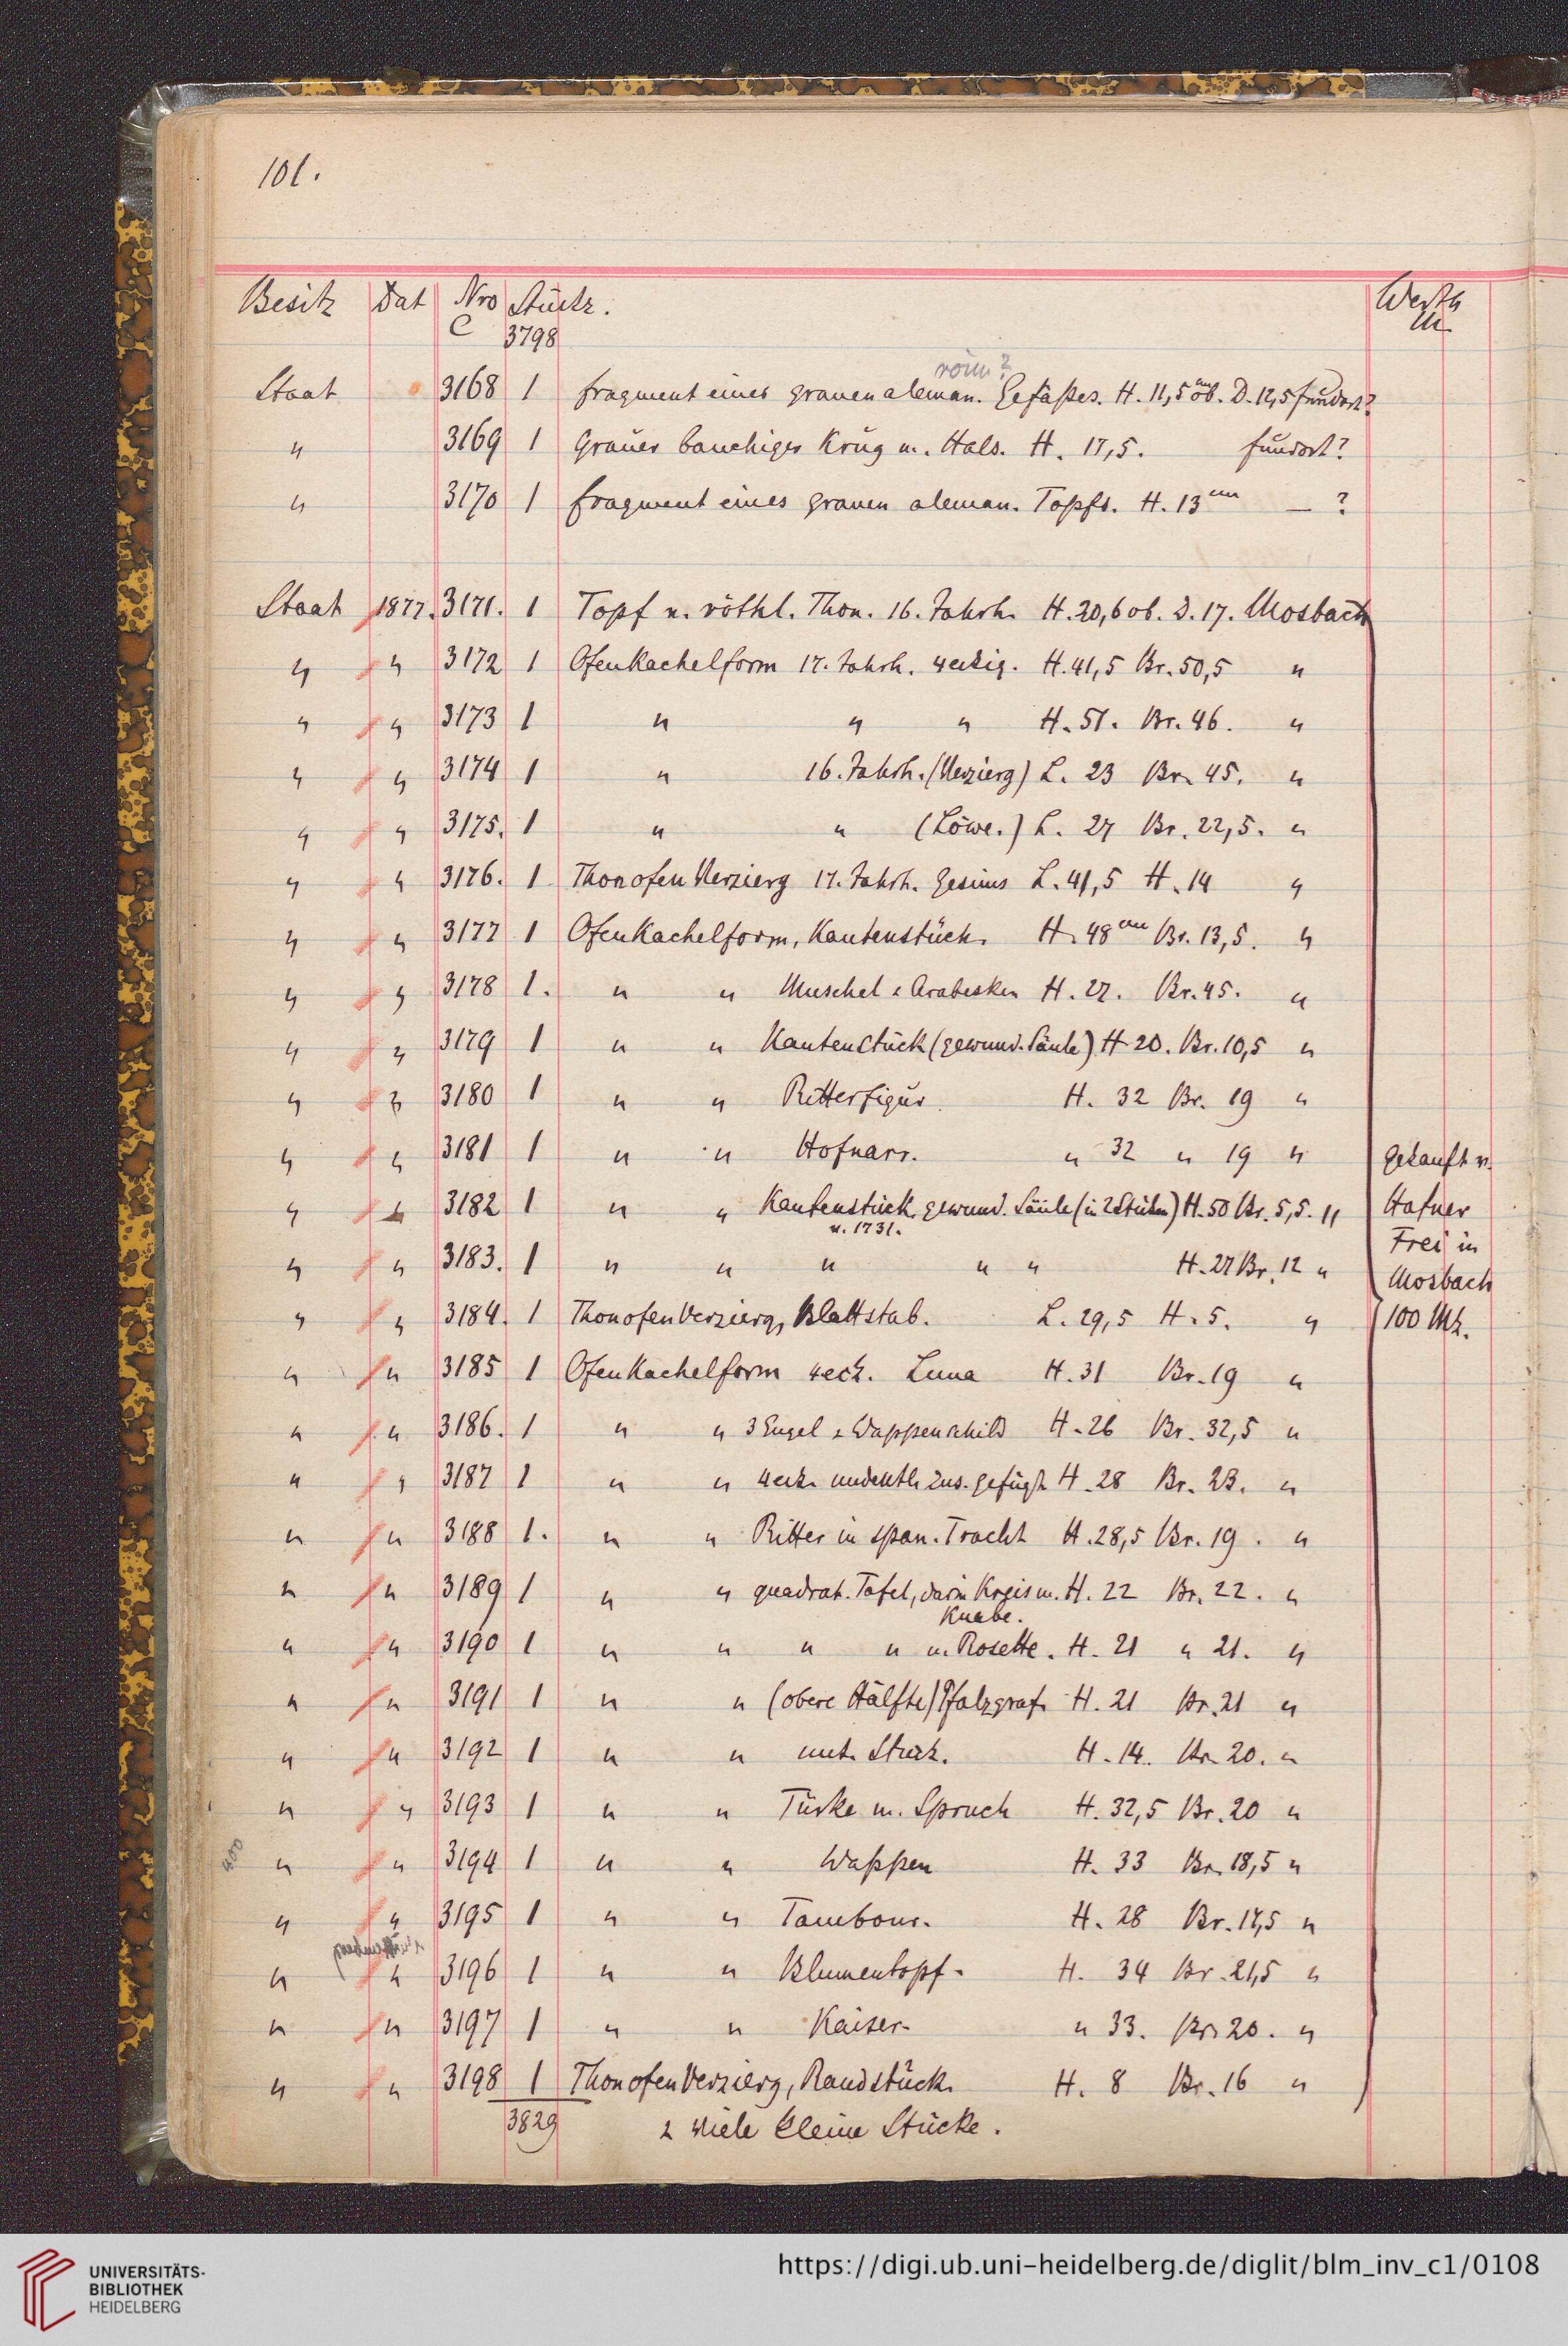 101.
Besitz Dat Nro Stückz. Werth
C 3798 M.
röm?
Staat 3168 1 Fragment eines grauen aleman. Gefäßes. H. 11,5 cm ob. D. 12,5 Fundort?
" 3169 1 Grauer bauchiger Krug m. Hals. H. 17,5. Fundort?
" 3170 1 Fragment eines grauen aleman. Topfs. H. 13 cm — ?
Staat 1877. 3171. 1 Topf v. röthl. Thon. 16. Jahrh. H. 20,6 ob. D. 17. Mosbach
" " 3172 1 Ofenkachelform 17. Jahrh. 4eckig. H. 41,5 Br. 50,5 "
" " 3173 1 " " " H. 51. Br. 46. "
" " 3174 1 " 16. Jahrh. (Verzierg) L. 23 Br. 45. "
" " 3175. 1 " " (Löwe.) L. 27 Br. 22,5. "
" " 3176. 1 Thonofen Verzierg 17. Jahrh. Gesims L. 41,5 H. 14 "
" " 3177 1 Ofenkachelform, Kantenstück. H. 48 cm Br. 13,5. "
" " 3178 1. " " Muschel & Arabesken H. 27. Br. 45. "
" " 3179 1 " " Kantenstück (gewund. Säule) H. 20. Br. 10,5 "
" " 3180 1 " " Ritterfigur. H. 32 Br. 19 "
" " 3181 1 " " Hofnarr. " 32 " 19 " Gekauft v.
" " 3182 1 " " Kantenstück gewund. Säule (in 2 Stücken) H. 50 Br. 5,5. " Hafner
v. 1731.
Frei in
" " 3183. 1 " " " " " H. 27 Br. 12 " Mosbach
" " 3184. 1 Thonofen Verzierg, Blattstab. L. 29,5 H. 5. " 100 Mk.
" " 3185 1 Ofenkachelform 4eck. Luna H. 31 Br. 19 "
" " 3186. 1 " " 3 Engel & Wappenschild H. 26 Br. 32,5 "
" " 3187 1 " " 4eck. undeutl. zus. gefügt H. 28 Br. 23. "
" " 3188 1. " " Ritter in span. Tracht H. 28,5 Br. 19. "
" " 3189 1 " " quadrat. Tafel, darin Kreis m. H. 22 Br. 22. "
Knabe.
" " 3190 1 " " " " m. Rosette. H. 21 " 21. "
" " 3191 1 " " (obere Hälfte) Pfalzgraf. H. 21 Br. 21 "
" " 3192 1 " " unt. Stück. H. 14. Br. 20. "
" " 3193 1 " " Türke m. Spruch H. 32,5 Br. 20 "
400 " " 3194 1 " " Wappen H. 33 Br. 18,5 "
" " 3195 1 " " Tambour. H. 28 Br. 17,5 "
" " 3196 1 " " Blumentopf. H. 34 Br. 21,5 "
" " 3197 1 " " Kaiser. " 33. Br. 20. "
" " 3198 1 Thonofen Verzierg, Randstück. H. 8 Br. 16 "
3829 & viele kleine Stücke.
UNIVERSITÄTS-
BIBLIOTHEK
HEIDELBERG
https://digi.ub.uni-heidelberg.de/diglit/blm_inv_c1/0108